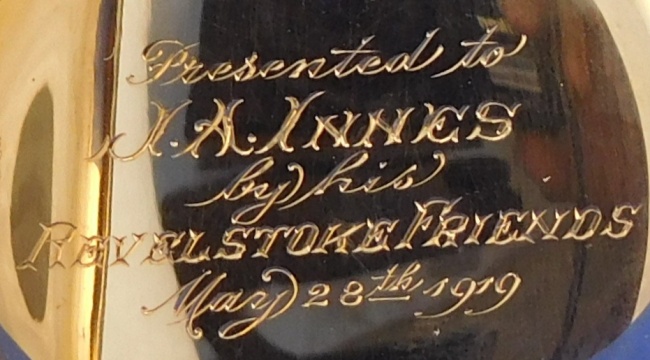 Presented to
J. A. INNES
by his
REVELSTOKE FRIENDS
May 28th 1919